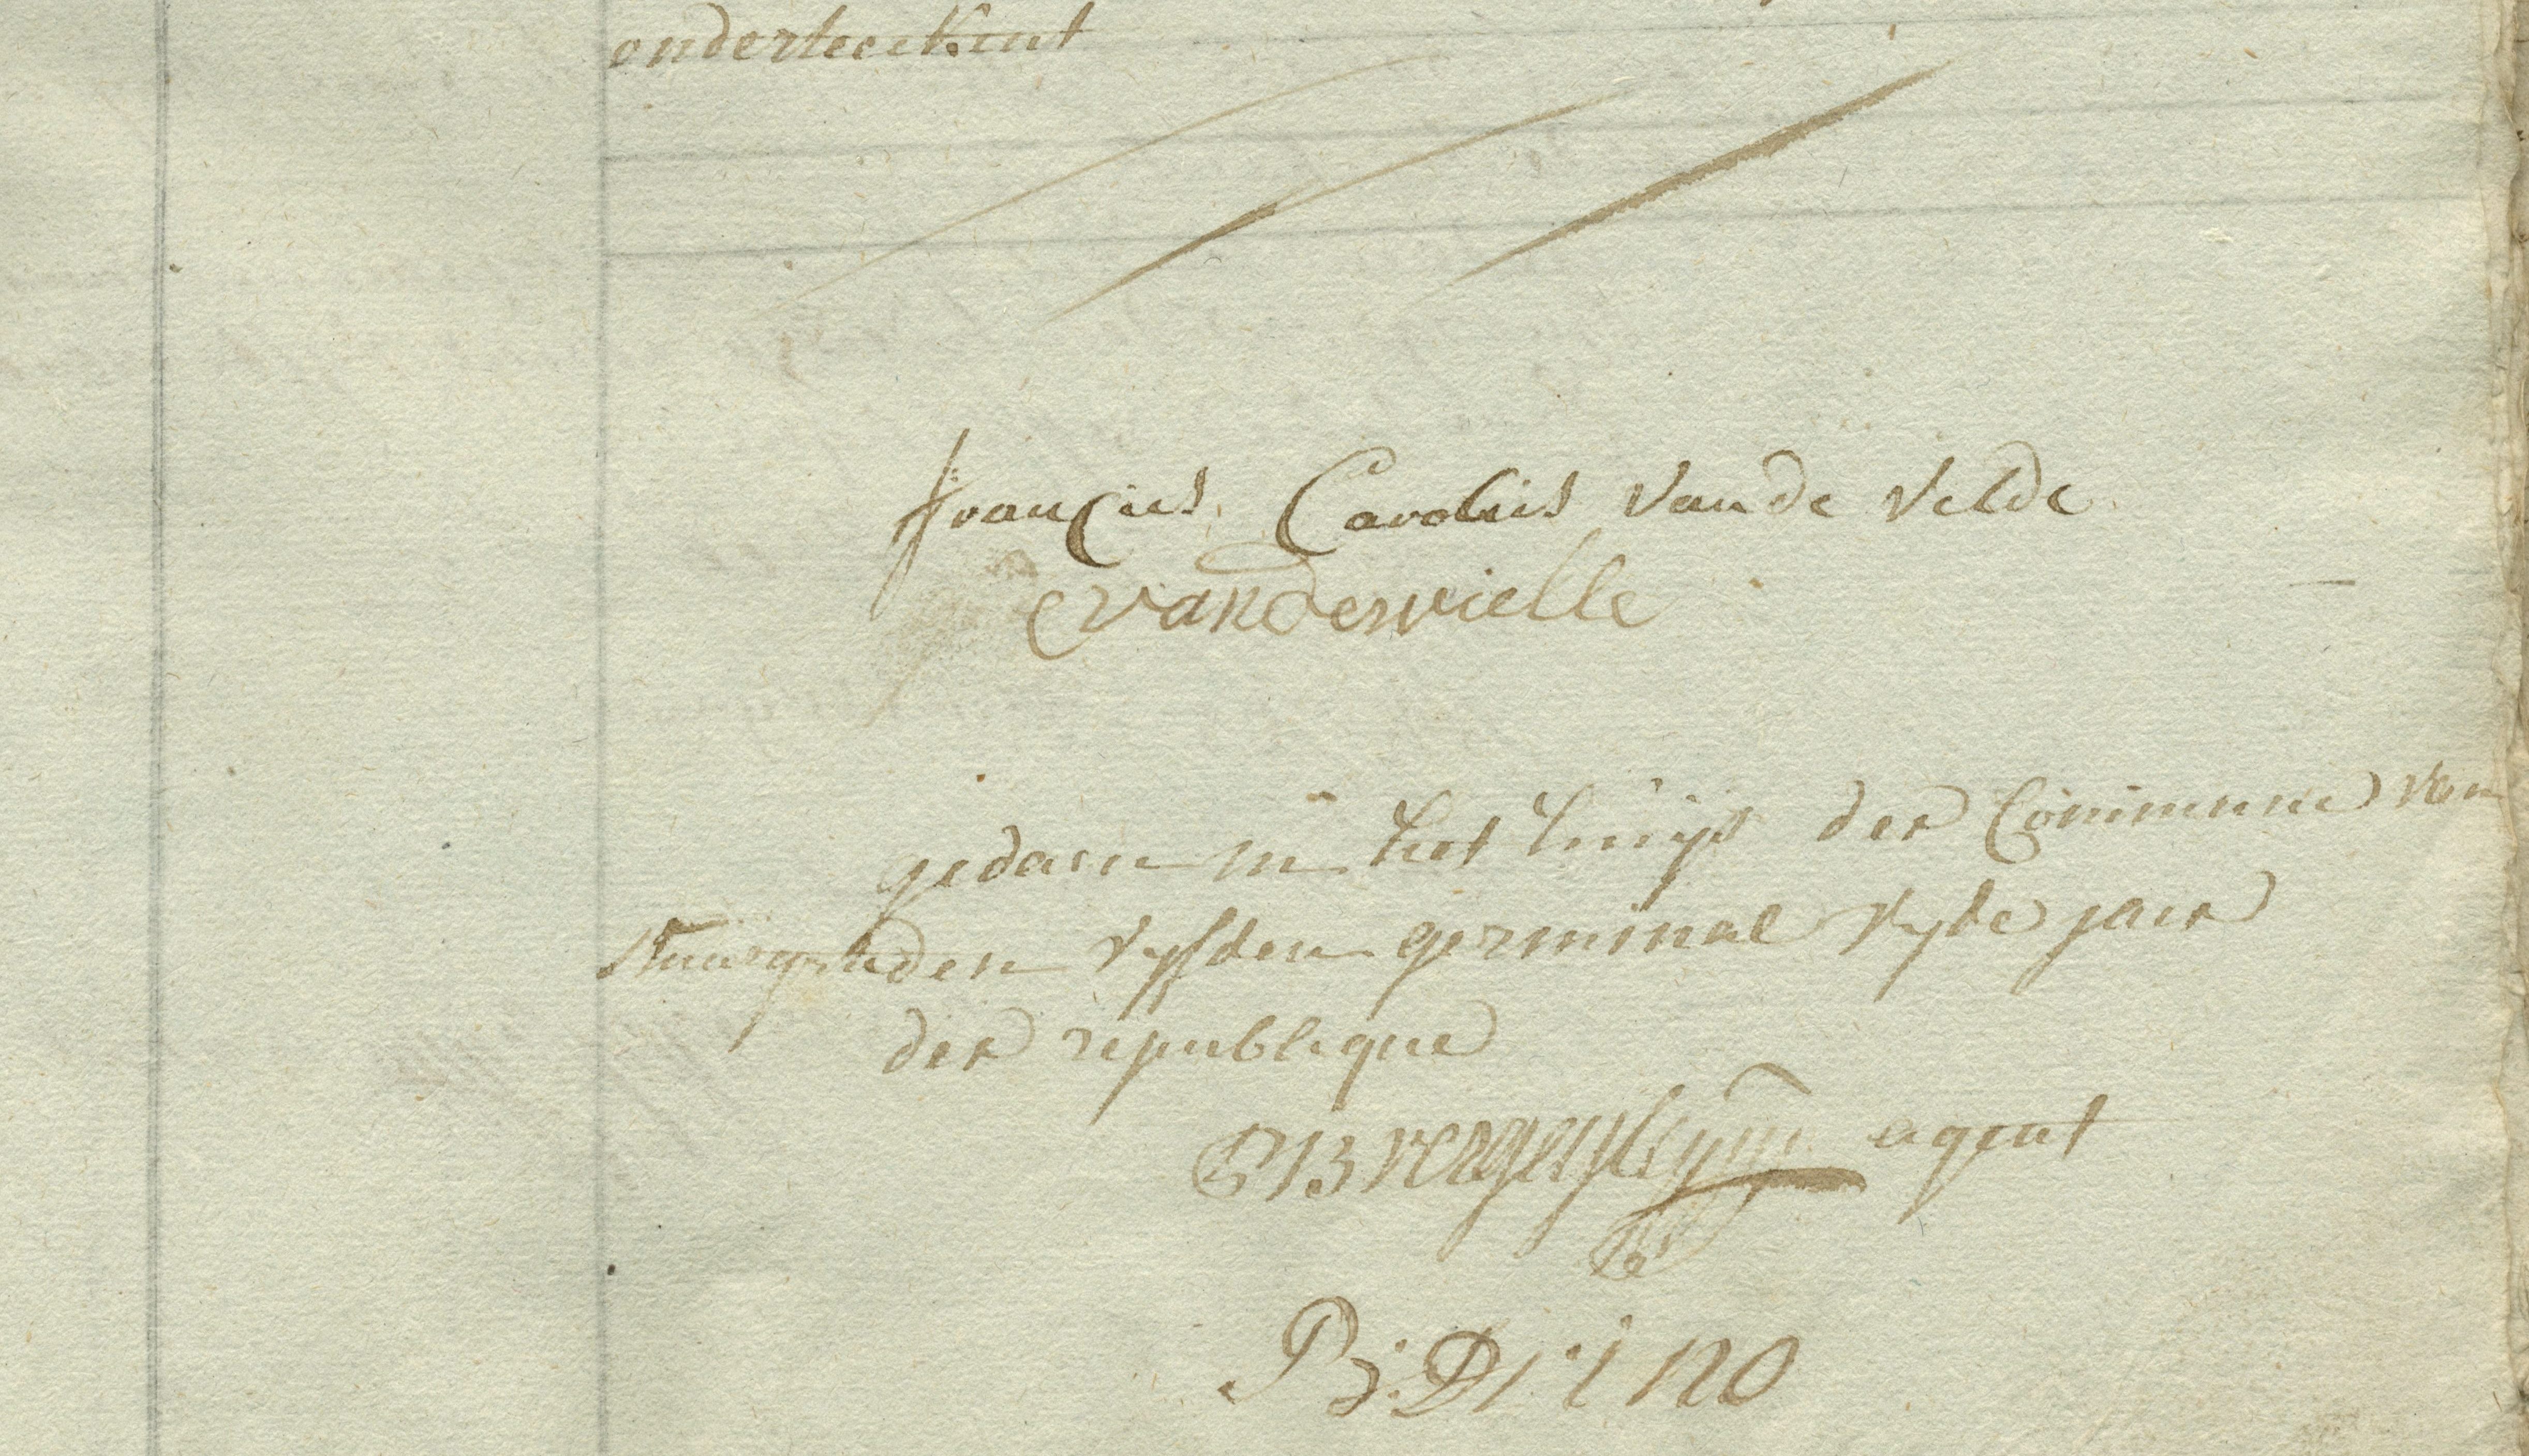 onderteekent
françies Carolus Vande Velde
vanderwielle
gedaen in het huijs der Commune van
den vyfden germinal vyfde jaer
der republique
agent